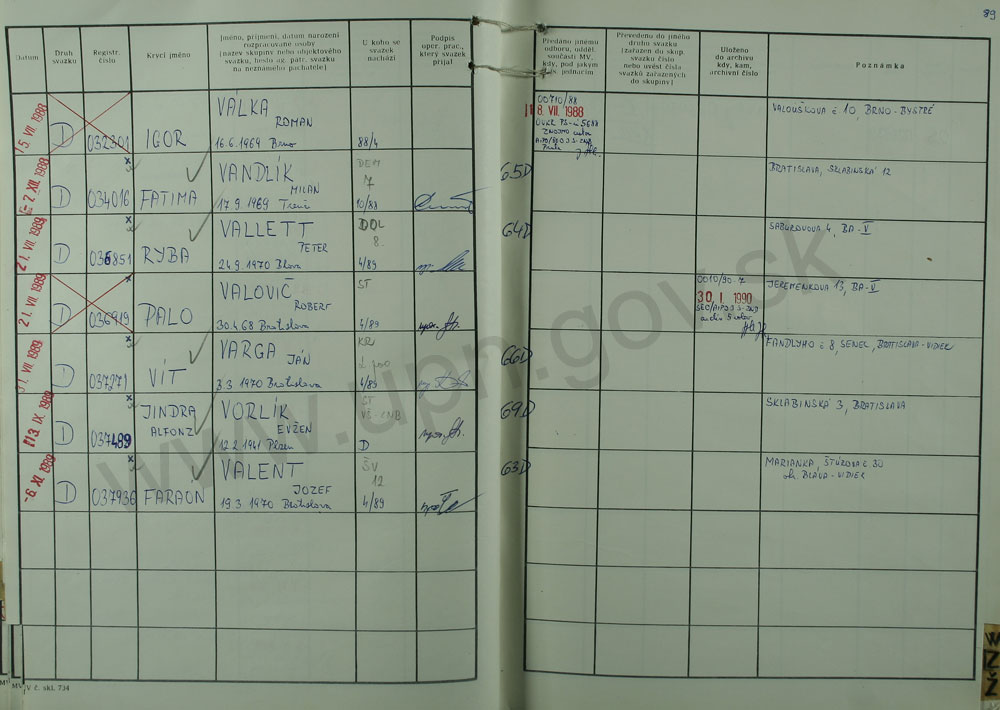 89
Datum
Druh svazku
Registr. číslo
Krycí jméno
Jméno, příjmení, datum narození
rozpracované osoby
(název skupiny nebo objektového
svazku, heslo ag. pátr. svazku
na neznámého pachatele)
U koho se
svazek
nachází
Podpis
oper. prac.,
který svazek
přijal
Předáno jinému
odboru, odděl.
součásti MV,
kdy, pod jakým
čís. jednacím
Převedeno do jiného
druhu svazku
(zařazen do skup.
svazku číslo
nebo uvést čísla
svazků zařazených
do skupiny)
Uloženo
do archivu
kdy, kam,
archivní číslo
Poznámka
15. VII. 1988
D
032301
IGOR
VÁLKA
ROMAN
16.6.1969 Brno
88/4
00710/88
8. VII. 1988
VALOUŠKOVA č 10, BRNO-BYSTRÉ
2. XII. 1988
D
034016
FATIMA
VANDLÍK
MILAN
17.9.1969
DEM
7
10/88
65D
BRATISLAVA, SKLABINSKÁ 12
21. VII. 1989
D
036851
RYBA
VALLETT
PETER
24.9.1970 Blava
DOL
8.
4/89
64D
SABUROVOVA 4, BA-V
21. VII. 1989
D
036919
PALO
VALOVIČ
ROBERT
30.4.68 Bratislava
ST
4/89
0010/90-7
30. I. 1990
JEREMENKOVA 13, BA-V
VII. 1989
D
037271
VÍT
VARGA
JÁN
3.3.1970 Bratislava
4/89
66D
FANDLYHO č 8, SENEC, BRATISLAVA-VIDIEK
13. IX. 1989
D
037489
JINDRA
ALFONZ
VORLÍK
EVŽEN
12.2.1941 Plzeň
ST
VŠ-ZNB
D
69D
SKLABINSKÁ 3, BRATISLAVA
-6. XI. 1989
D
037936
FARAÓN
VALENT
JOZEF
19.3.1970 Bratislava
ŠV
12
4/89
63D
MARIANKA, ŠTÚROVA č. 30
ok. BLAVA-VIDIEK
www.upn.gov.sk
MV
V č. skl. 734
W
Z
Ž